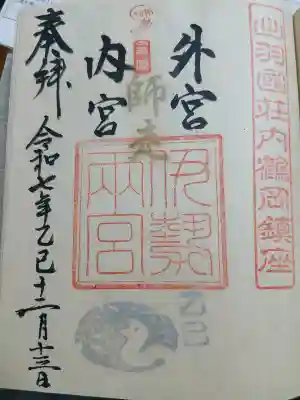 出羽國荘内鶴岡鎮座
外宮
師走
内宮
伊勢
両宮
乙巳
奉拝
令和七年乙巳十二月十三日